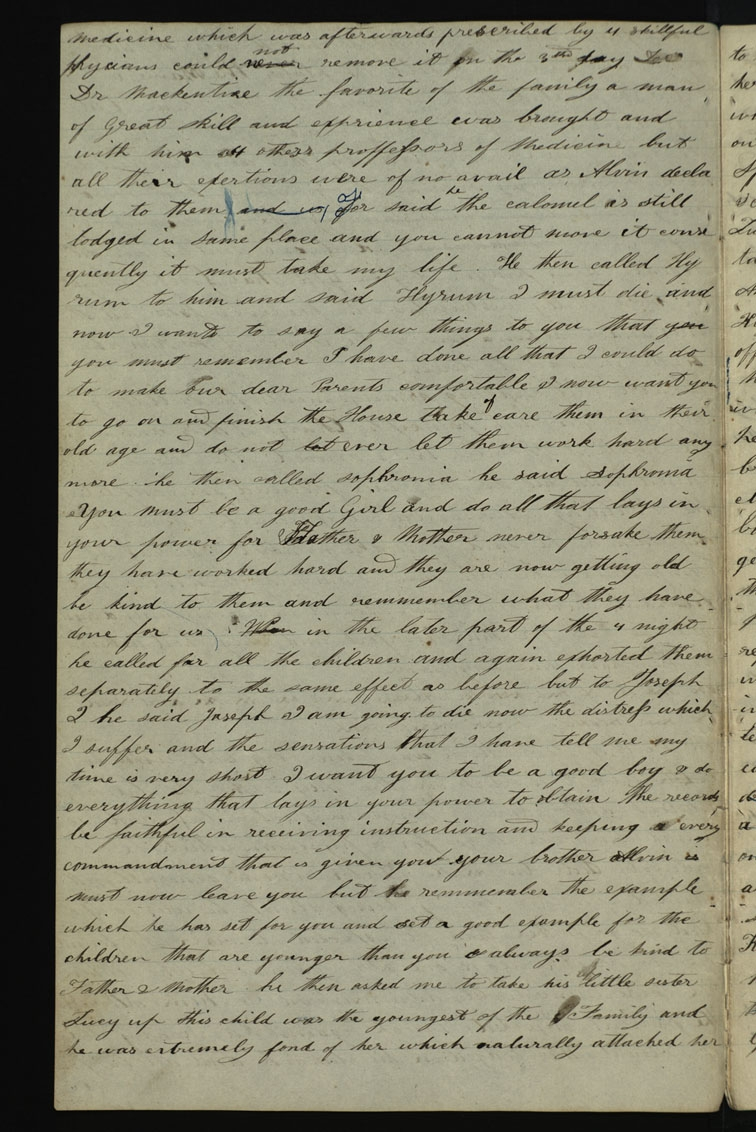 medicine which was afterwards prescribed by 4 skillful
phycians could never not remove it on the 3th day
Dr Mackentire the favorite of the family a man
of great skill and exprience was brought and
with him 4 others proffessors of medicine but
all their exertions were of no avail as Alvin decla
red to them and us For said he the calomel is still
lodged in same place and you cannot move it conse
quently it must take my life. He then called Hy
rum to him and said Hyrum I must die and
now I want to say a few things to you that you
you must remember I have done all that I could do
to make our dear Parents comfortable I now want you
to go on and finish the House take of care them in their
old age and do not let ever let them work hard any
more he then called sophronia he said Sophronia
You must be a good Girl and do all that lays in
your power for Father & Mother never forsake them
they have worked hard and they are now getting old
be kind to them and remmember what they have
done for us. When in the later part of the 4 night
he called for all the children and again exhorted them
separately to the same effect as before but to Joseph
2 he said Joseph I am going to die now the distress which
I suffer and the sensations that I have tell me my
time is very short I want you to be a good boy & do
everything that lays in your power to obtain the records
be faithful in receiving instruction and keeping every
commandment that is given you your brother Alvin is
must now leave you but remmember the example
which he has set for you and set a good example for the
children that are younger than you & always be kind to
Father & Mother he then asked me to take his little sister
Lucy up this child was the youngest of the Family and
he was extremely fond of her which naturally attached her